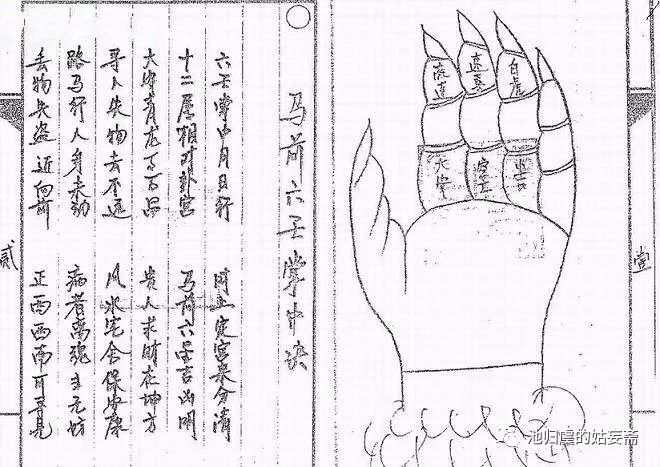 壹
流连 速喜 白虎
大安 空亡 小吉
马前六壬掌中诀
六壬掌中月日行 时上定宫来分清
十二属相对卦宫 马前六壬吉凶明
大安青龙百品 贵人求财在坤方
寻人失物去不远 风水宅舍保安康
路马行人身未动 病者离魂主无妨
丢物失盗近向前 正西西南可寻见
贰
池归虞的姑妄斋